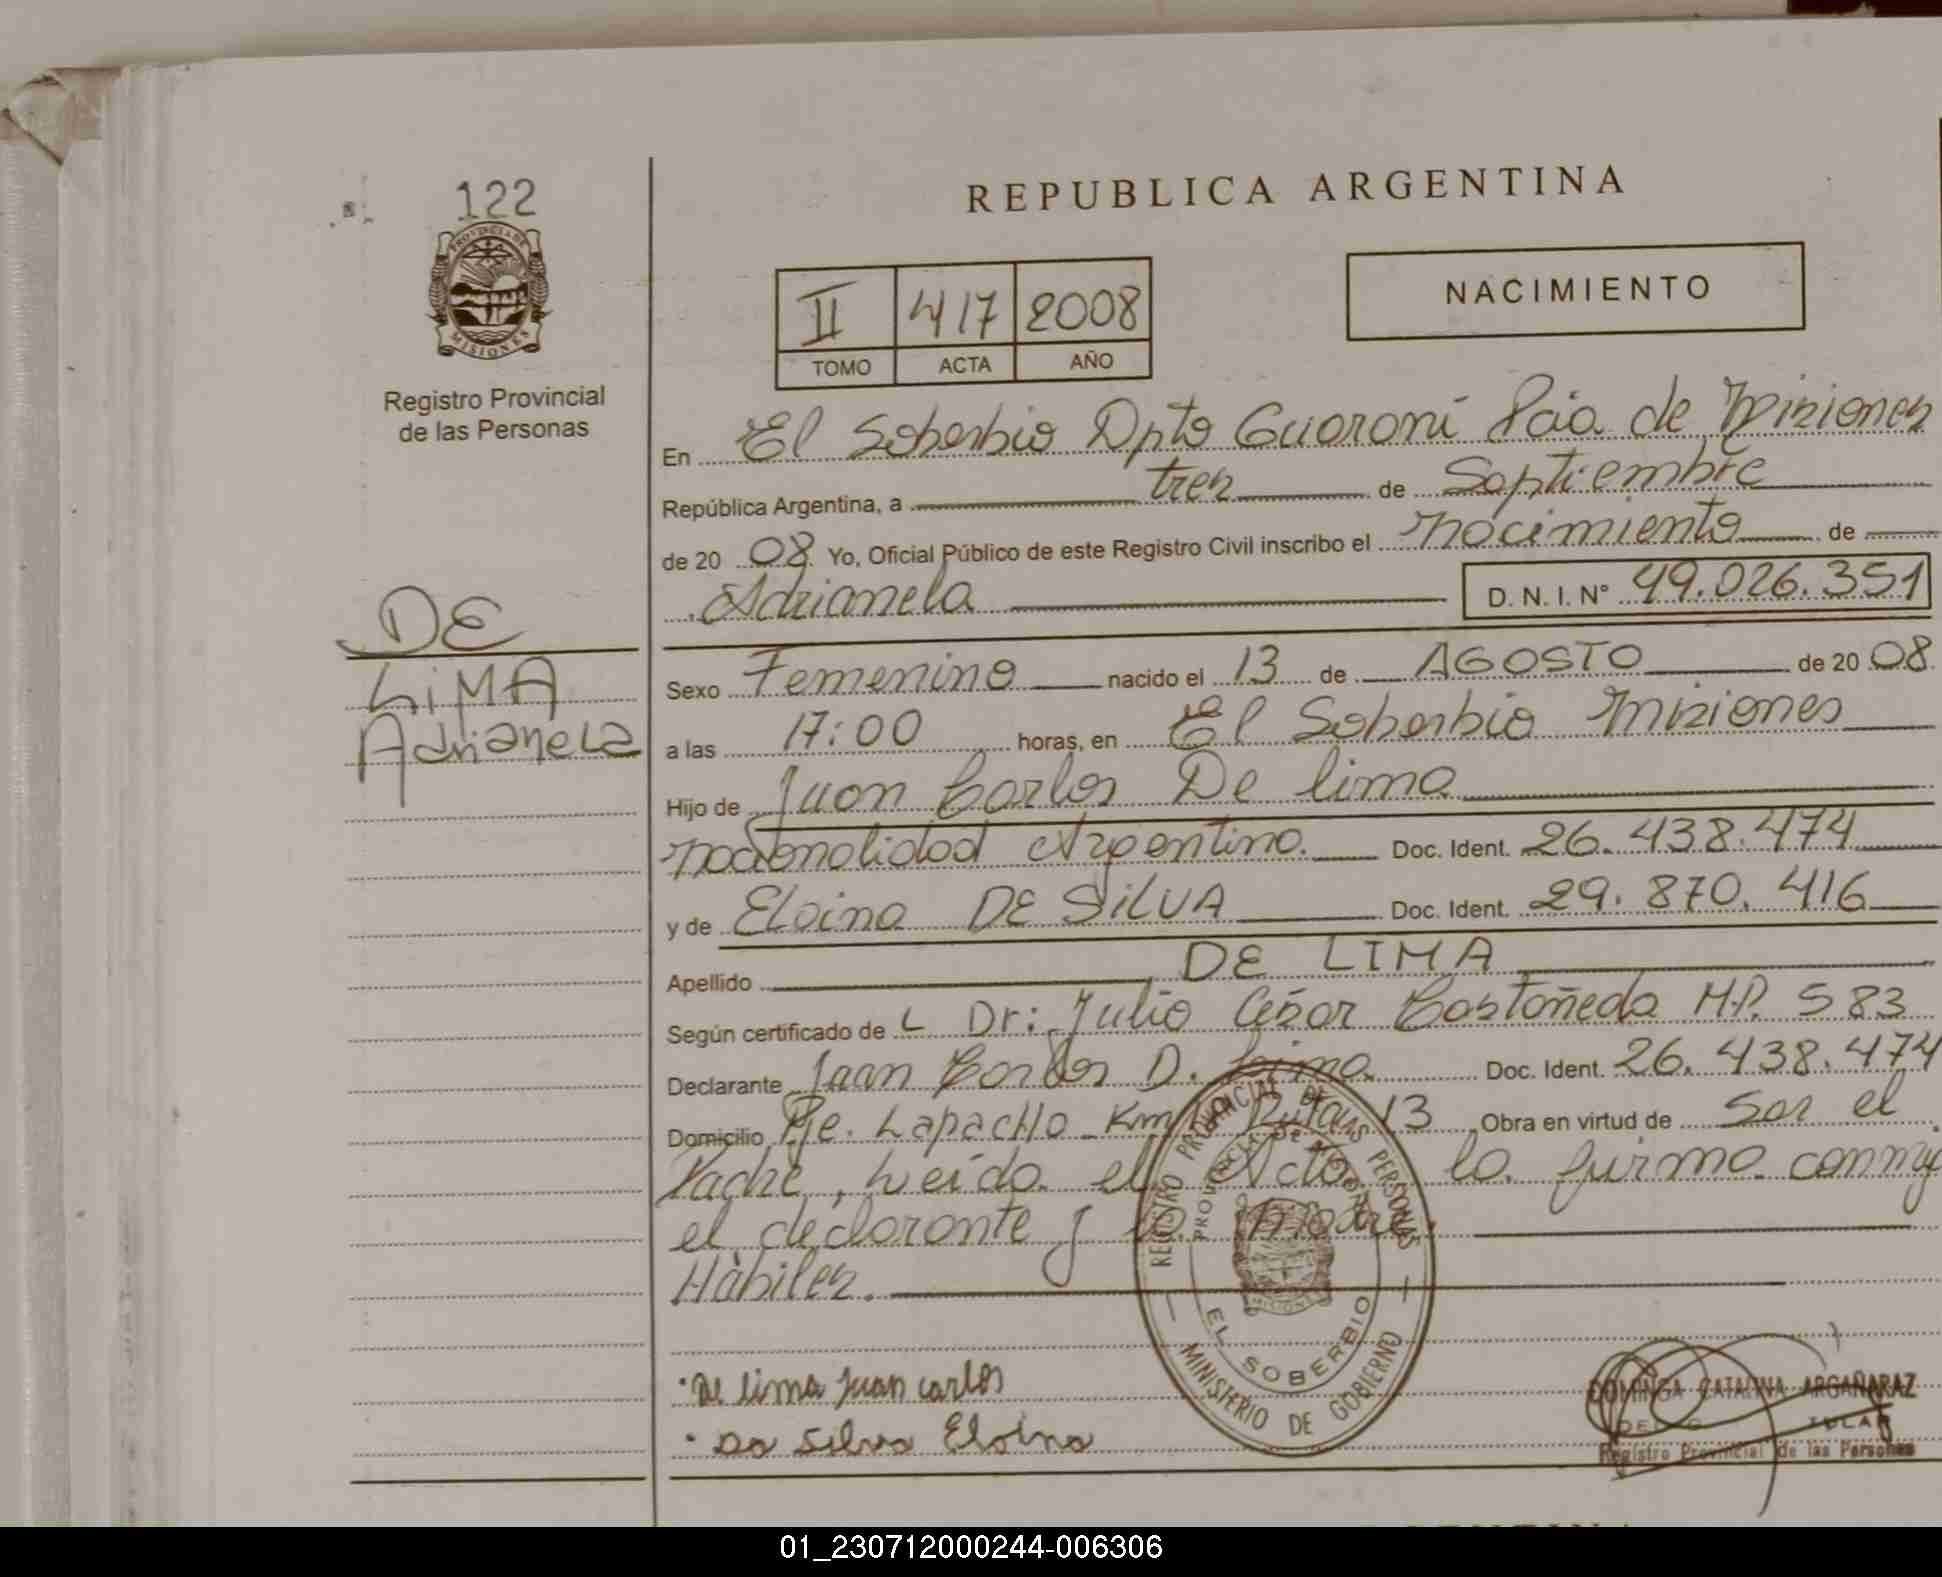 122
PROVINCIA DE
MISIONES
Registro Provincial
de las Personas
REPUBLICA ARGENTINA
II 417 2008
TOMO ACTA AÑO
NACIMIENTO
En El Soberbio Dpto Guaraní Pcia de Misiones
República Argentina, a tres de Septiembre
de 20 08 Yo, Oficial Público de este Registro Civil inscribo el nacimiento de
Adrianela D. N. I. N° 49.026.351
DE
LiMA
Adrianela
Sexo Femenino nacido el 13 de AGOSTO de 20 08
a las 17:00 horas, en El Soberbio Misiones
Hijo de Juan Carlos De lima
nacionalidad Argentina. Doc. Ident. 26.438.474
y de Eloina DE SiLVA Doc. Ident. 29.870.416
Apellido DE LIMA
Según certificado de L Dr: Julio César Castañeda M.P. 583
Declarante Juan Carlos D. lima Doc. Ident. 26.438.474
Domicilio Pje. Lapacho Km Ruta 13 Obra en virtud de Ser el
Padre, Leída el Acta la firma conmigo
el declarante y la madre.
Hábiles.
REGISTRO PROVINCIAL DE LAS PERSONAS
PROVINCIA DE MISIONES
MISIONES
EL SOBERBIO
MINISTERIO DE GOBIERNO
De lima Juan carlos
Da Silva Eloina
DOMINGA CATALINA ARGAÑARAZ
Registro Provincial de las Personas
01_230712000244-006306